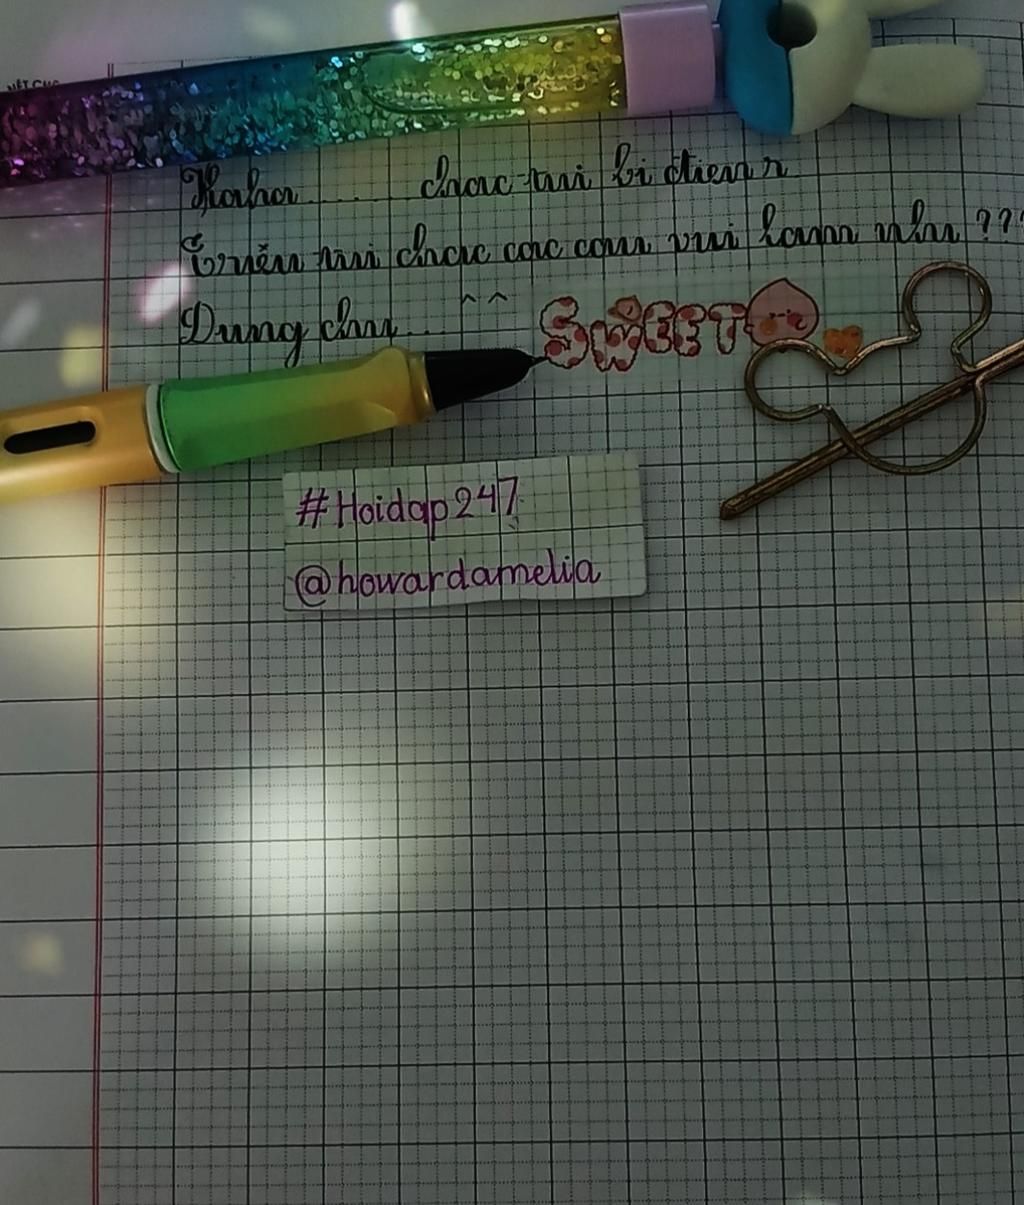 Haha ........ chac tui bi dien r
Truên tui chac cac cau vui lam nhu ???
Dung chu... ^^ SWEET
#Hoidap247
@howardamelia